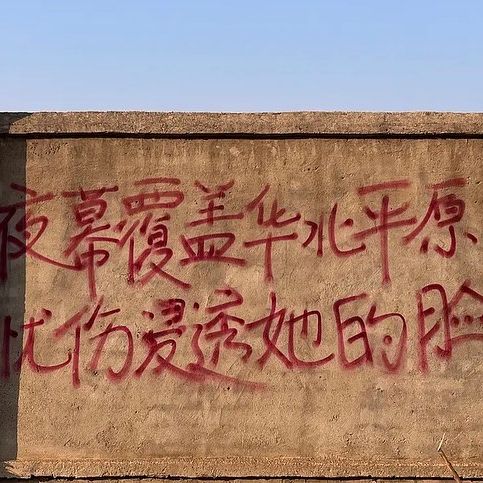 夜幕覆盖华北平原
忧伤浸透她的脸